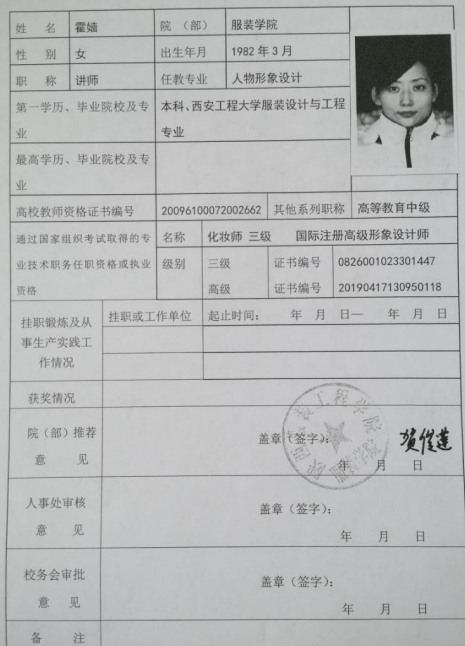 姓 名 霍嫱 院（部） 服装学院
性 别 女 出生年月 1982年3月
职 称 讲师 任教专业 人物形象设计
第一学历、毕业院校及专业 本科、西安工程大学服装设计与工程专业
最高学历、毕业院校及专业
高校教师资格证书编号 20096100072002662 其他系列职称 高等教育中级
通过国家组织考试取得的专业技术职务任职资格或执业资格 名称 化妆师 三级 国际注册高级形象设计师
级别 三级 证书编号 0826001023301447
高级 证书编号 20190417130950118
挂职锻炼及从事生产实践工作情况 挂职或工作单位 起止时间： 年 月 日— 年 月 日
获奖情况
院（部）推荐
意 见
盖章（签字）： 贺俊莲
年 月 日
人事处审核
意 见
盖章（签字）：
年 月 日
校务会审批
意 见
盖章（签字）：
年 月 日
备 注